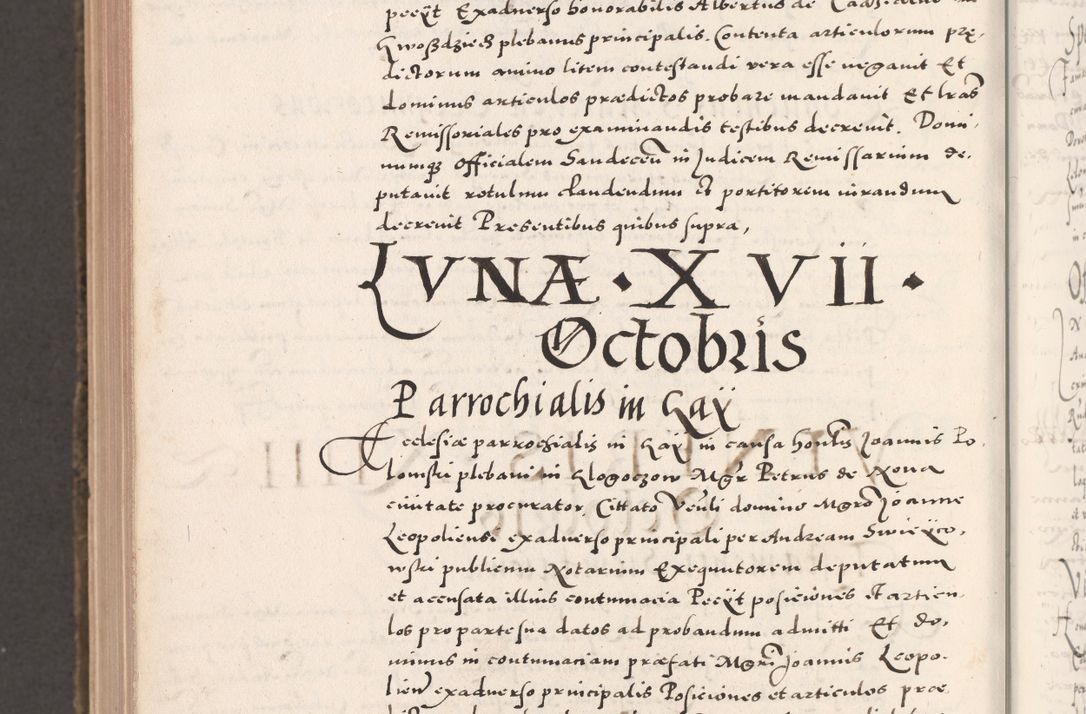 pecÿt Exaduerso honorabilis Albertus de
Gwoszdziecz plebanus principalis. Contenta articulorum prę-
dictorum animo litem contestandi vera esse negauit Et
dominus articulos prædictos probare mandauit Et lras
Remissoriales pro examinandis testibus decreuit. Domi-
numq3 Officialem Sandeceñ in Judicem Remissarium de-
putauit rotulum claudendum Et portitorem iurandum
decreuit Presentibus quibus supra,
LVNÆ · X VII ·
Octobris
Parrochialis in Gaÿ
Ecclesiæ parrochialis in Gaÿ in causa honlis Joannis Po-
lomski plebani in Glogoczow Mgr Petrus de Noua
ciuitate procurator, Cittato Venli domino Mgro Joanne
Leopoliensi exaduerso principali per Andream Swieÿco-
wski publicum Notarium Exequutorem deputatum
et accusata illius contumacia Pecÿt posiciones et articu-
los pro parte sua datos ad probandum admitti Et do-
minus in contumaciam præfati Mgri Joannis Leopo-
lien exaduerso principalis Posiciones et articulos præ-